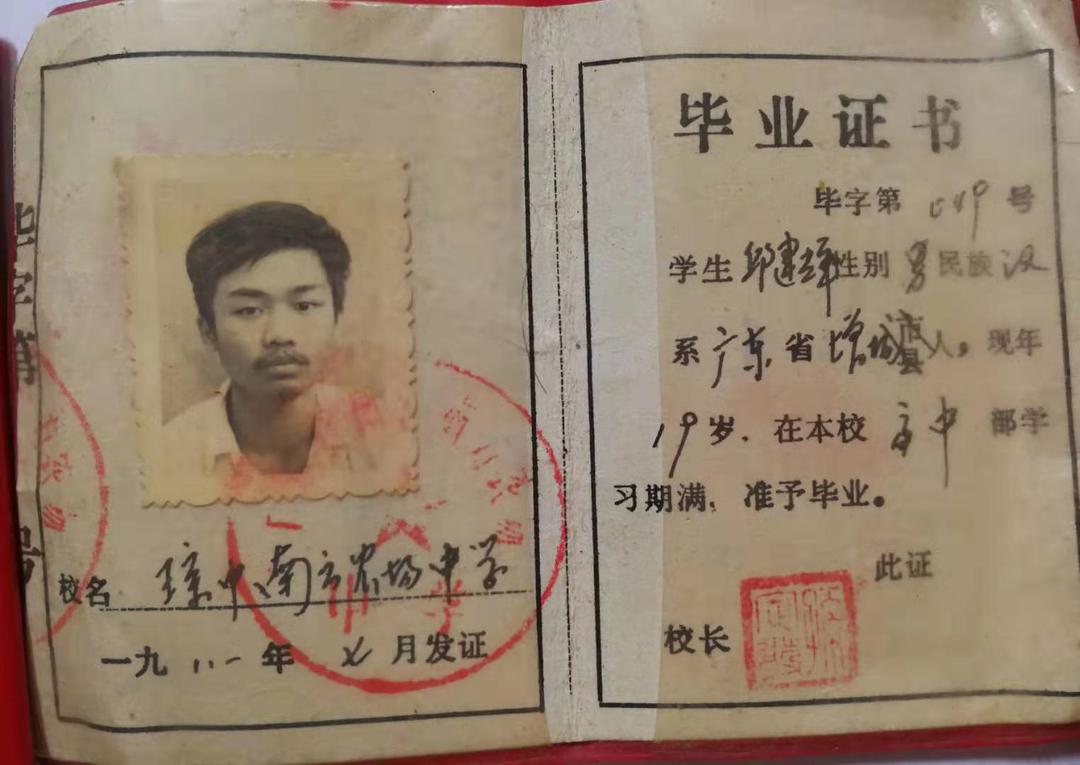 毕字第
号
校名 琼中南方农场中学
一九八一年 七 月发证
毕业证书
毕字第 049 号
学生 邱建 性别 男 民族 汉
系 广东 省 增城 市县 人。现年
19 岁，在本校 高中 部学
习期满，准予毕业。
此证
校长